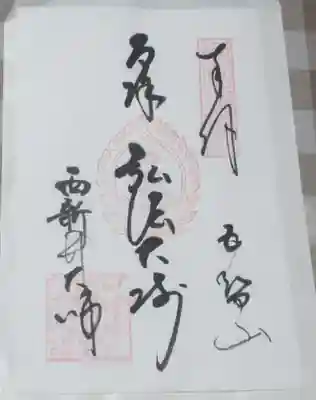 奉拝
五智山
厄除
弘法大師
西新井大師